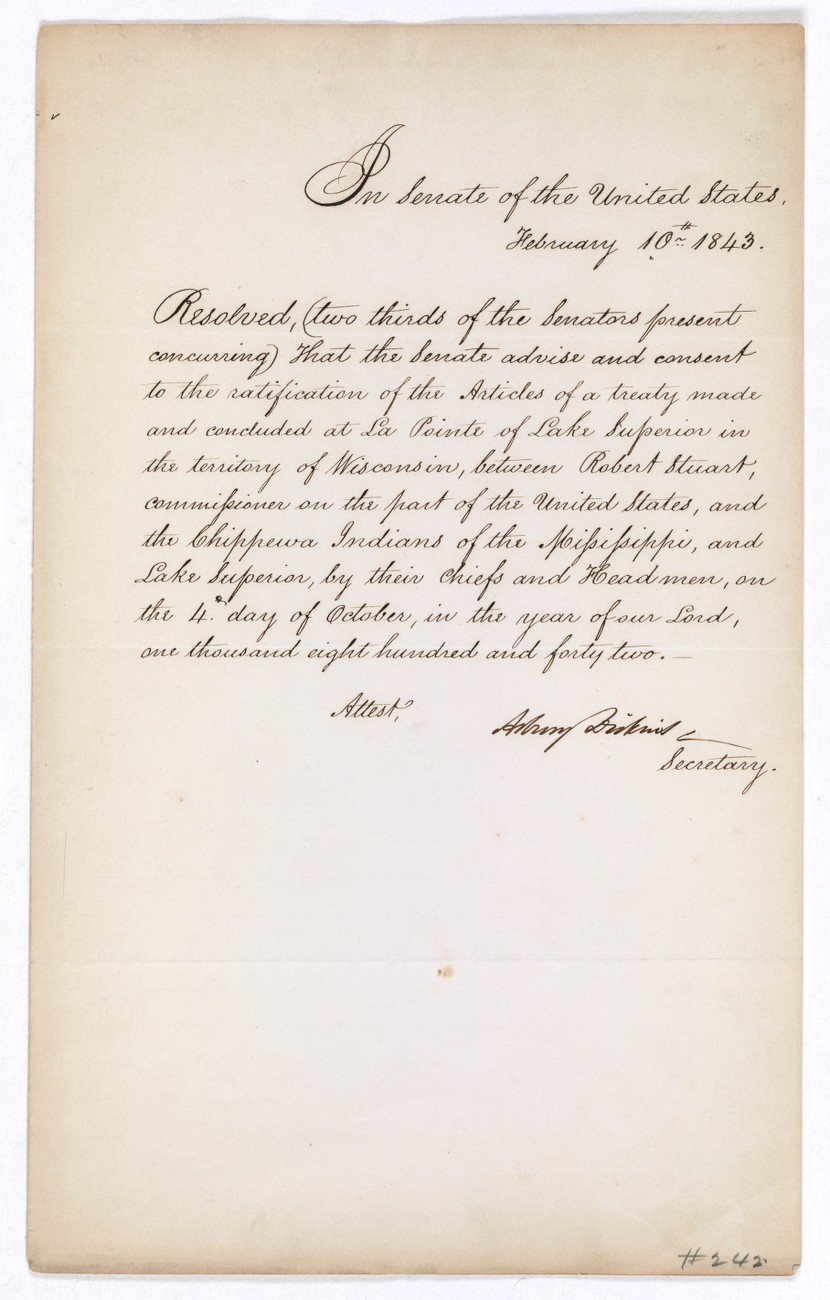 In Senate of the United States.
February 10th 1843.
Resolved, (two thirds of the Senators present
concurring) That the Senate advise and consent
to the ratification of the Articles of a treaty made
and concluded at La Pointe of Lake Superior in
the territory of Wisconsin, between Robert Stuart,
commissioner on the part of the United States, and
the Chippewa Indians of the Mississippi, and
Lake Superior, by their Chiefs and Headmen, on
the 4th day of October, in the year of our Lord,
one thousand eight hundred and forty two. —
Attest,
Asbury Dickins
Secretary.
#242